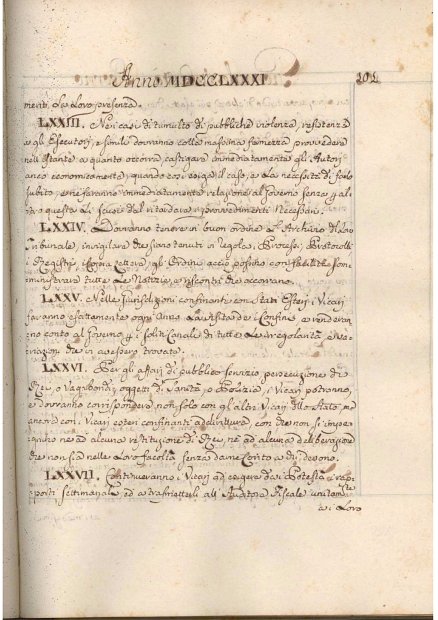 Anno MDCCLXXXI. 102
meriti la loro presenza.
LXXIII. Nei casi di tumulto di pubbliche violenze, resistenza
a gli Esecutori, e simili dovranno colla massima fermezza provvedere
nell'istante a quanto occorra, castigare immediatamente gli Autori an-
anco economicamente, quando così esiga il caso, e la necessità di farlo
subito, e ne faranno immediatamente relazione al Governo senza
questa li scusi dal ritardare i provvedimenti necessarj.
LXXIV. Dovranno tenere in buon ordine l'Archivio del loro
Tribunale, invigilare che siano tenuti in regola i Processi, Protocolli
i Registri, Copia lettere, gl'Ordini acciò possino con facilità som-
ministrare tutte le Notizie, e riscontri che occorrano.
LXXV. Nelle Jurisdizioni confinanti con Stati Esteri i Vicarj
faranno esattamente ogni Anno la visita de' Confini, e renderan-
no conto al Governo p i soliti Canali di tutte le irregolarità, e va-
riazioni che vi avessero trovate.
LXXVI. Per gli affari di pubblico servizio persecuzione di
Rei, o Vagabondi, oggetti di Sanità, o Polizia, i Vicarj potranno,
e dovranno corrispondere non solo con gli altri Vicarj dello Stato, ma
ancora con i Vicarj esteri confinanti addirittura, con che non si impe-
gnino nè ad alcuna restituzione di Rei, nè ad alcuna deliberazione
che non sia nelle loro facoltà senza darne conto a chi devono.
LXXVII. Continueranno i Vicarj ad esigere da i Potestà i rap-
porti settimanali, ed a trasmetterli all'Auditore Fiscale unitam.te
a i loro